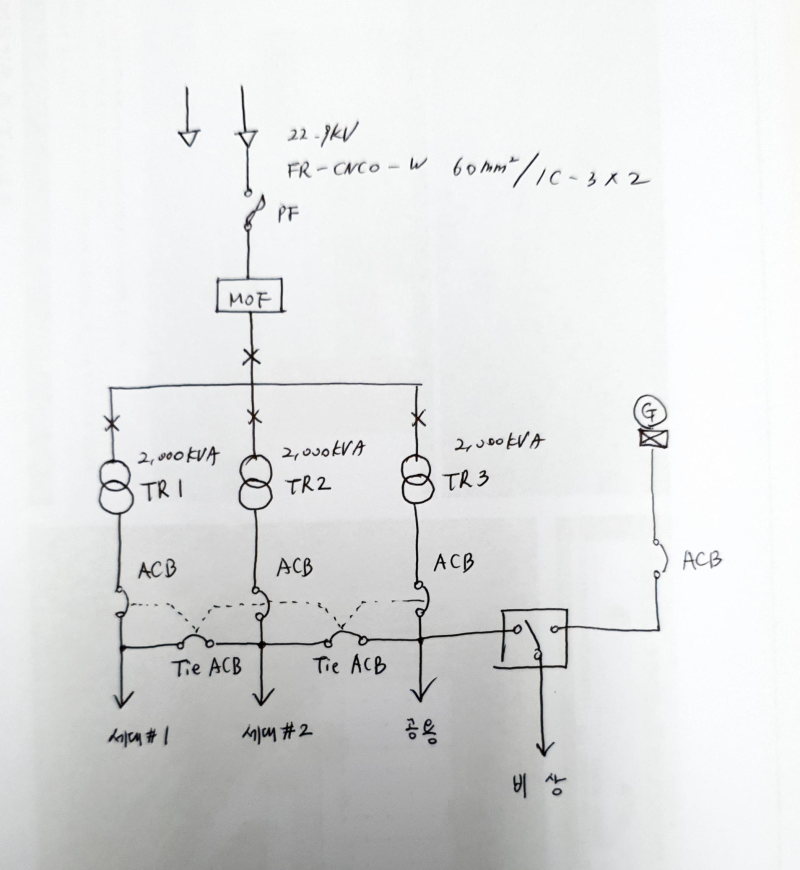 22.9kV
FR-CNCO-W 60mm²/1C-3×2
PF
MOF
G
2,000KVA
TR1
2,000KVA
TR2
2,000KVA
TR3
ACB
ACB
ACB
ACB
Tie ACB
Tie ACB
세대#1
세대#2
공용
비상